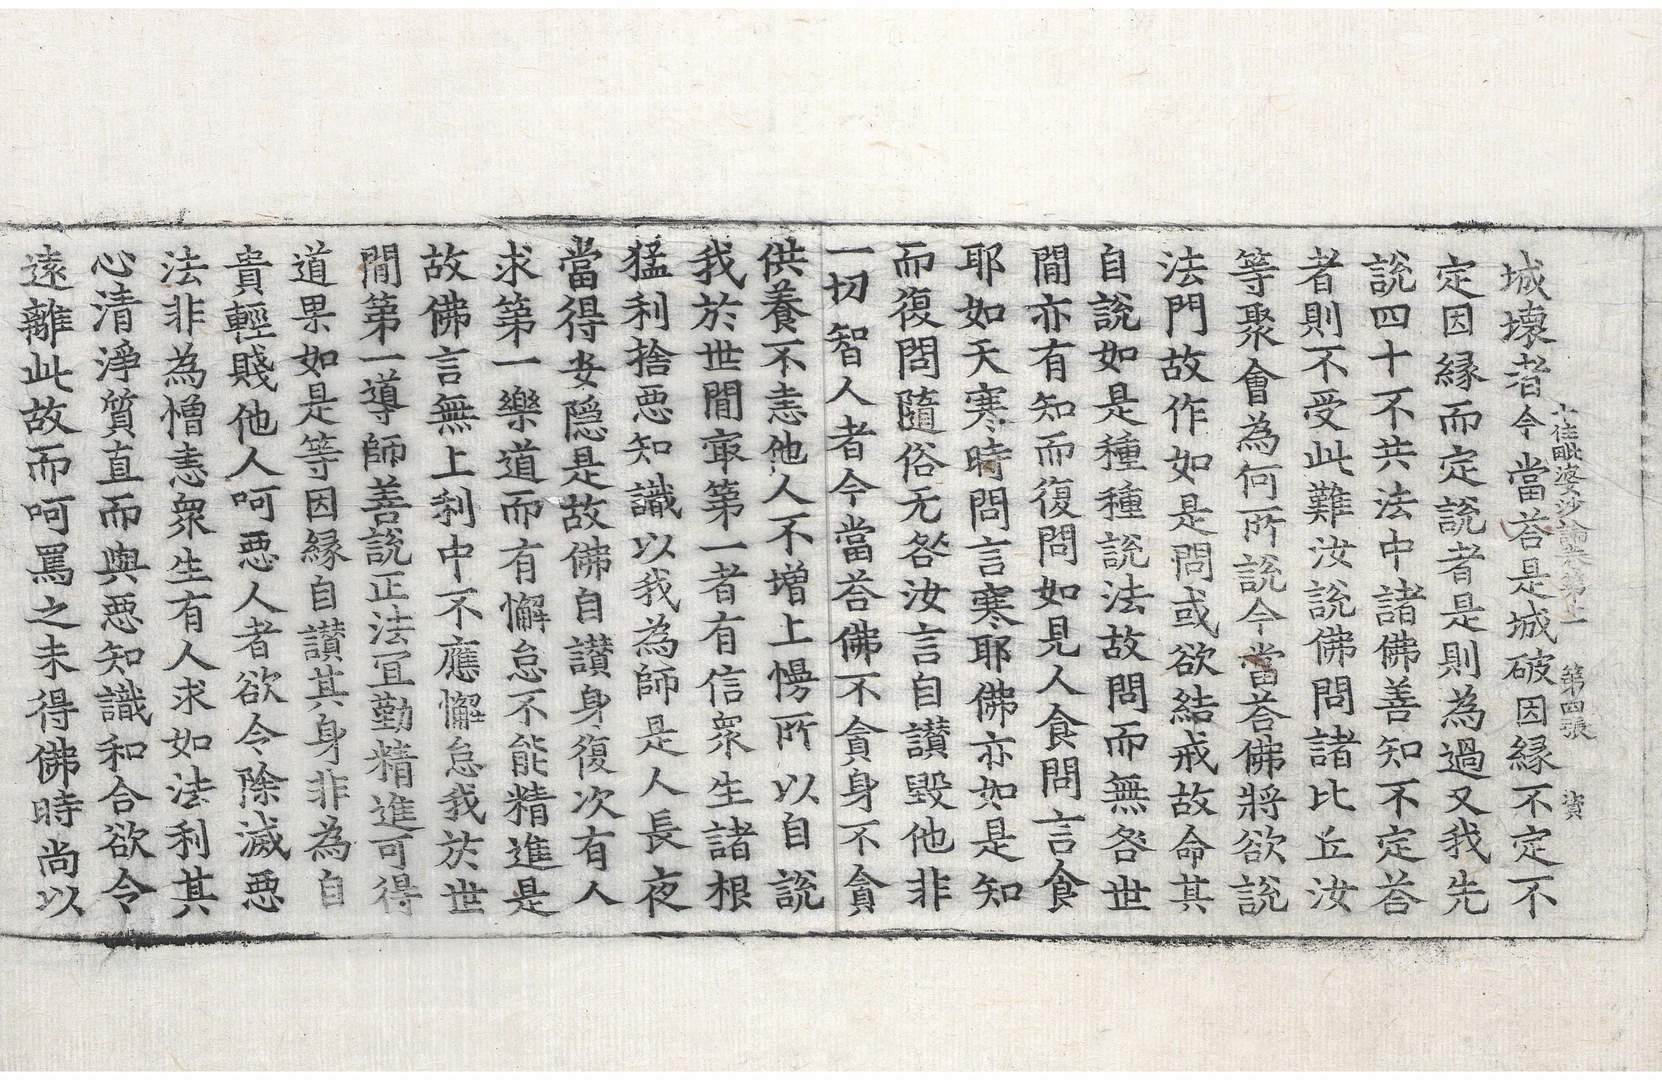 十住毗婆沙論卷第十一 第四張 資
城壞者今當荅是城破因縁不定不
定因縁而定說者是則為過又我先
說四十不共法中諸佛善知不定荅
者則不受此難汝說佛問諸比丘汝
等聚會為何所說今當荅佛將欲說
法門故作如是問或欲結戒故命其
自說如是種種說法故問而無咎世
間亦有知而復問如見人食問言食
耶如天寒時問言寒耶佛亦如是知
而復問隨俗无咎汝言自讃毀他非
一切智人者今當荅佛不貪身不貪
供養不恚他人不增上慢所以自說
我於世間㝡第一者有信衆生諸根
猛利捨惡知識以我為師是人長夜
當得安隱是故佛自讃身復次有人
求第一樂道而有懈怠不能精進是
故佛言無上利中不應懈怠我於世
間第一導師善說正法冝勤精進可得
道果如是等因縁自讃其身非為自
貴輕賤他人呵惡人者欲令除滅惡
法非為憎恚衆生有人求如法利其
心清淨質直而與惡知識和合欲令
遠離此故而呵罵之未得佛時尚以